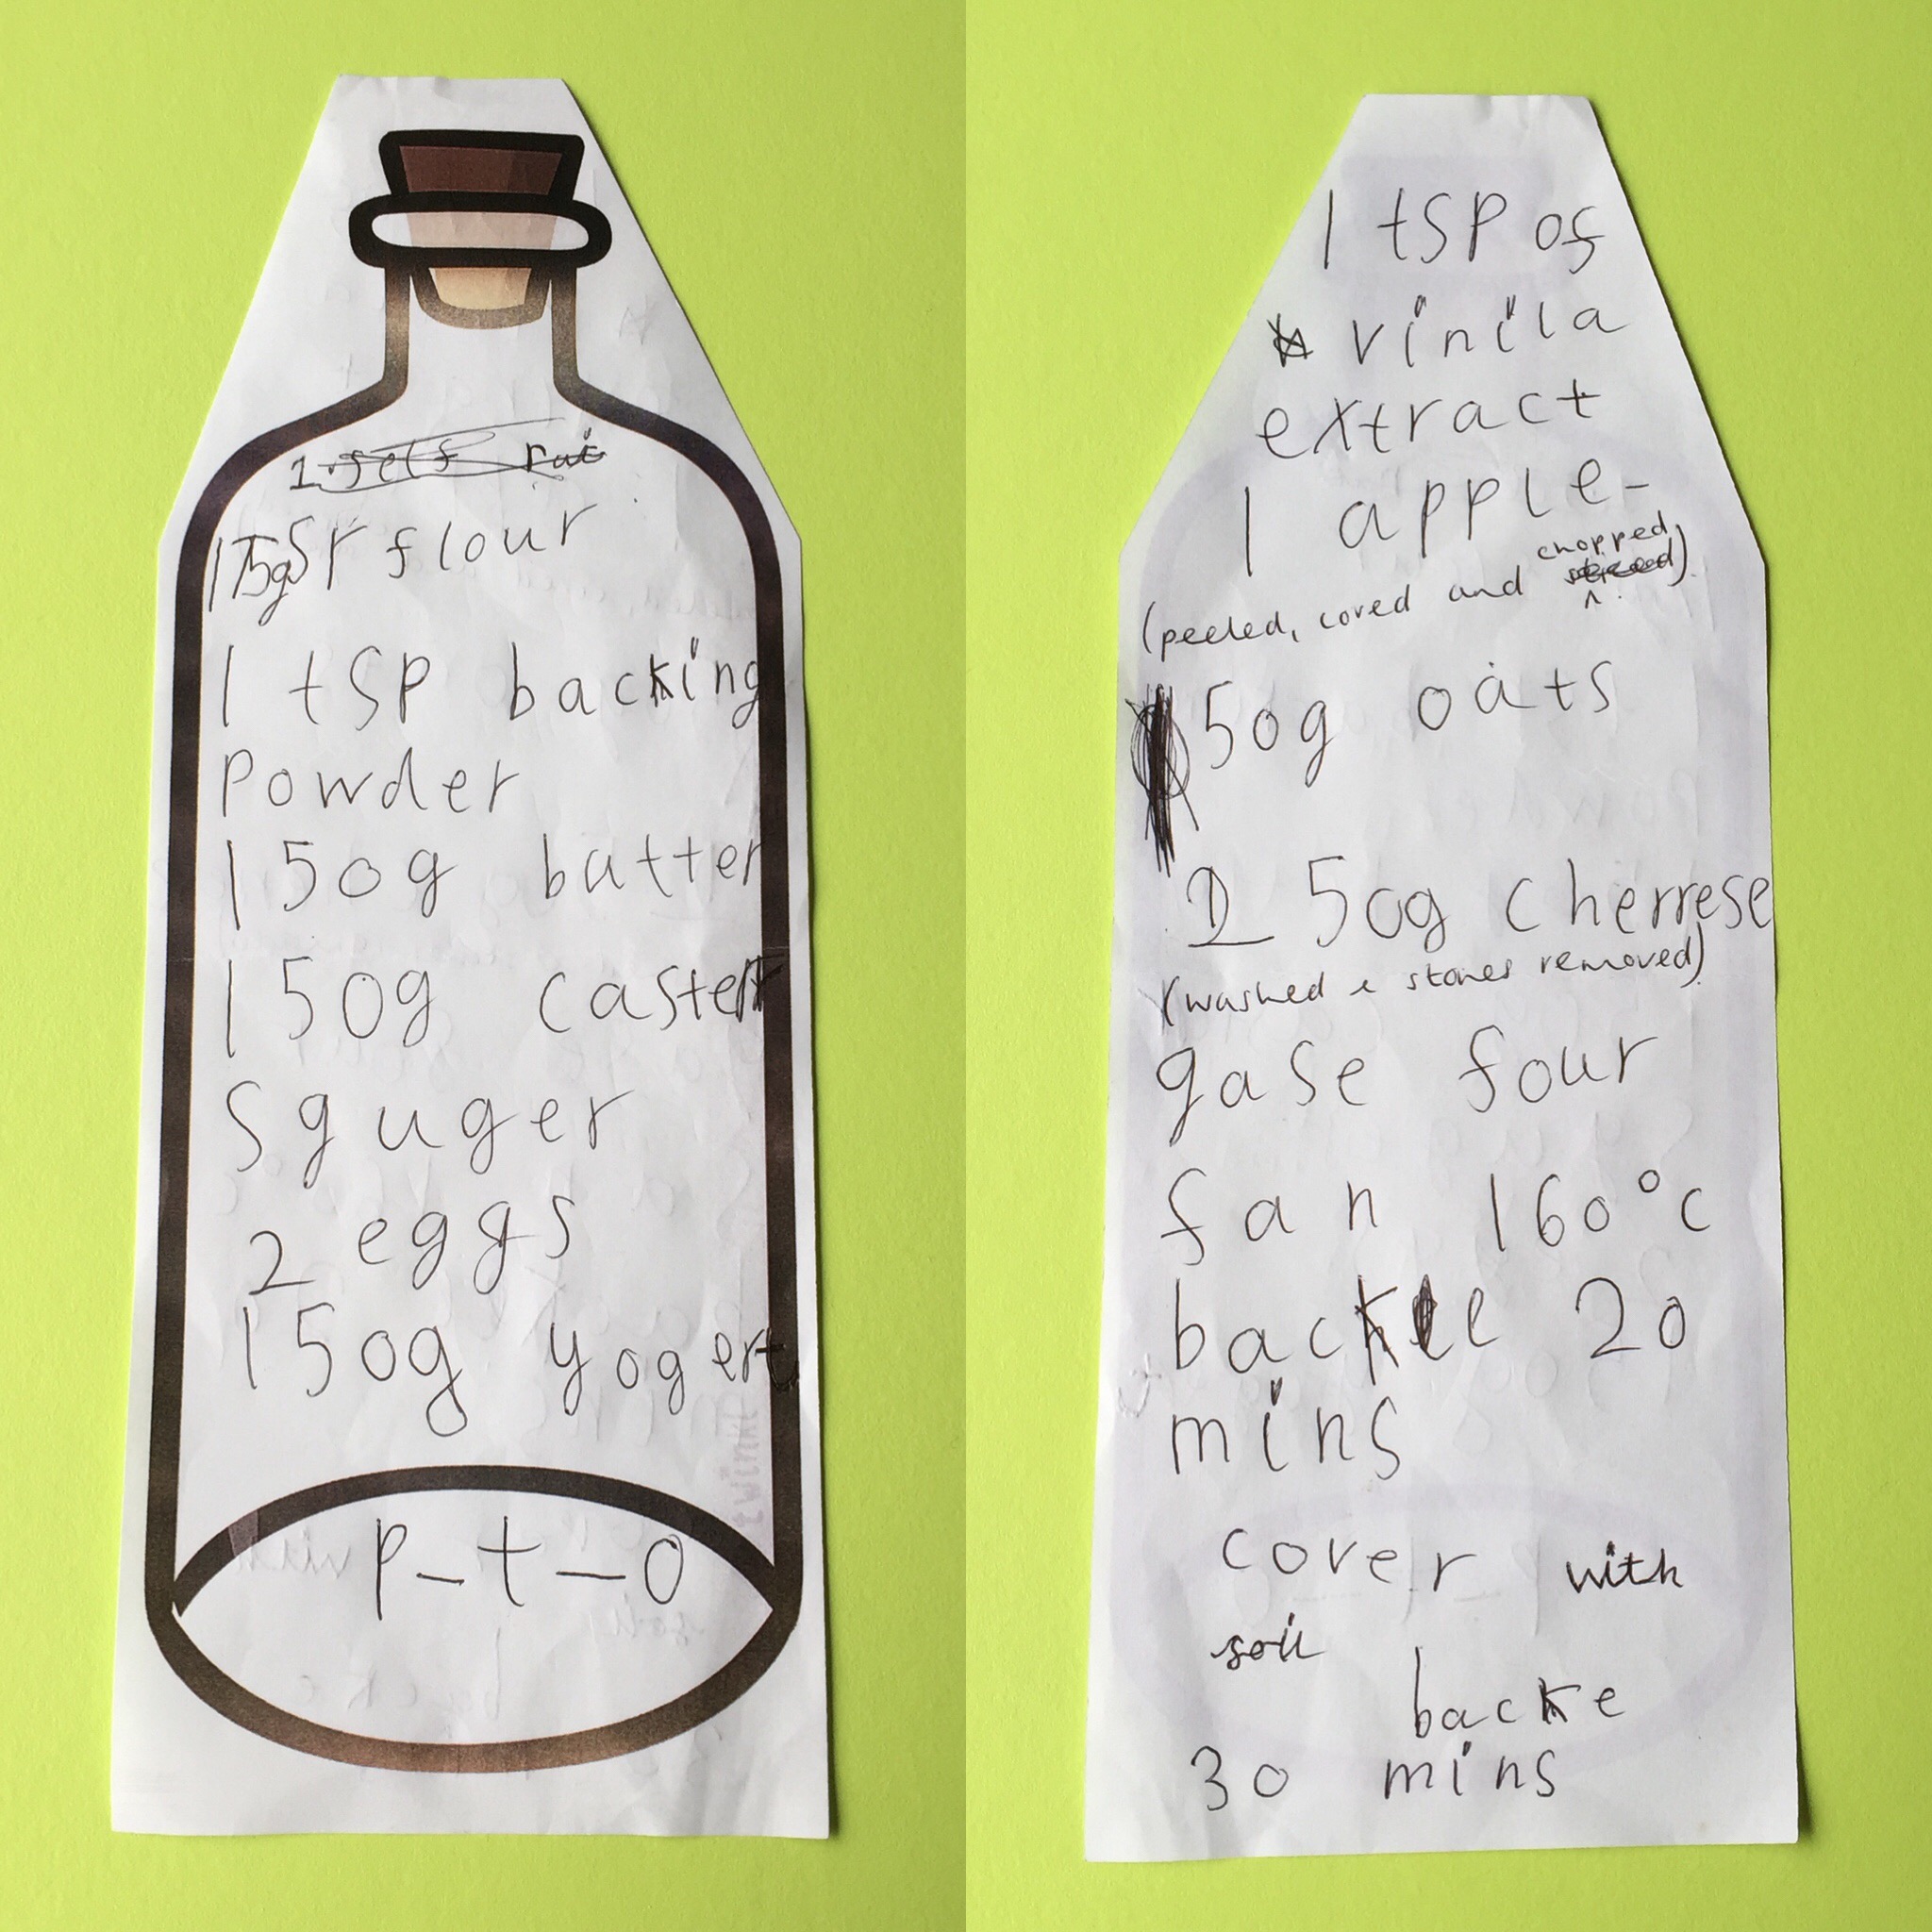 1. self rai
175g Sr flour
1 tsp backing
powder
150g batter
150g caster
sguger
2 eggs
150g yogert
twinkl
p-t-o
1 tsp of
vinila
extract
1 apple-
chopped
(peeled, cored and sliced)
50g oats
250g cherrese
(washed & stones removed)
gase four
fan 160°c
backe 20
mins
cover with
soil
backe
30 mins